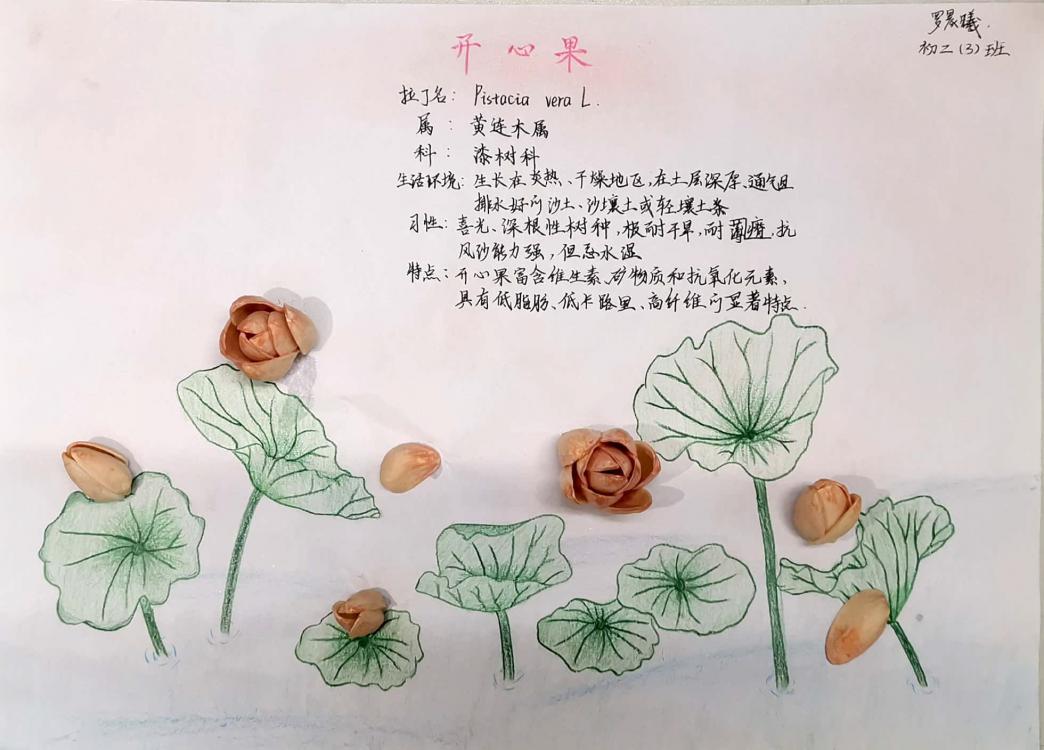 罗晨曦.
初二(3)班
开心果
拉丁名: Pistacia vera L.
属: 黄连木属
科: 漆树科
生活环境: 生长在炎热、干燥地区,在土层深厚、通气且
排水好的沙土、沙壤土或轻壤土条
习性: 喜光、深根性树种,极耐干旱,耐瘠,抗
风沙能力强,但忌水湿
特点: 开心果富含维生素、矿物质和抗氧化元素、
具有低脂肪、低卡路里、高纤维的显著特点.